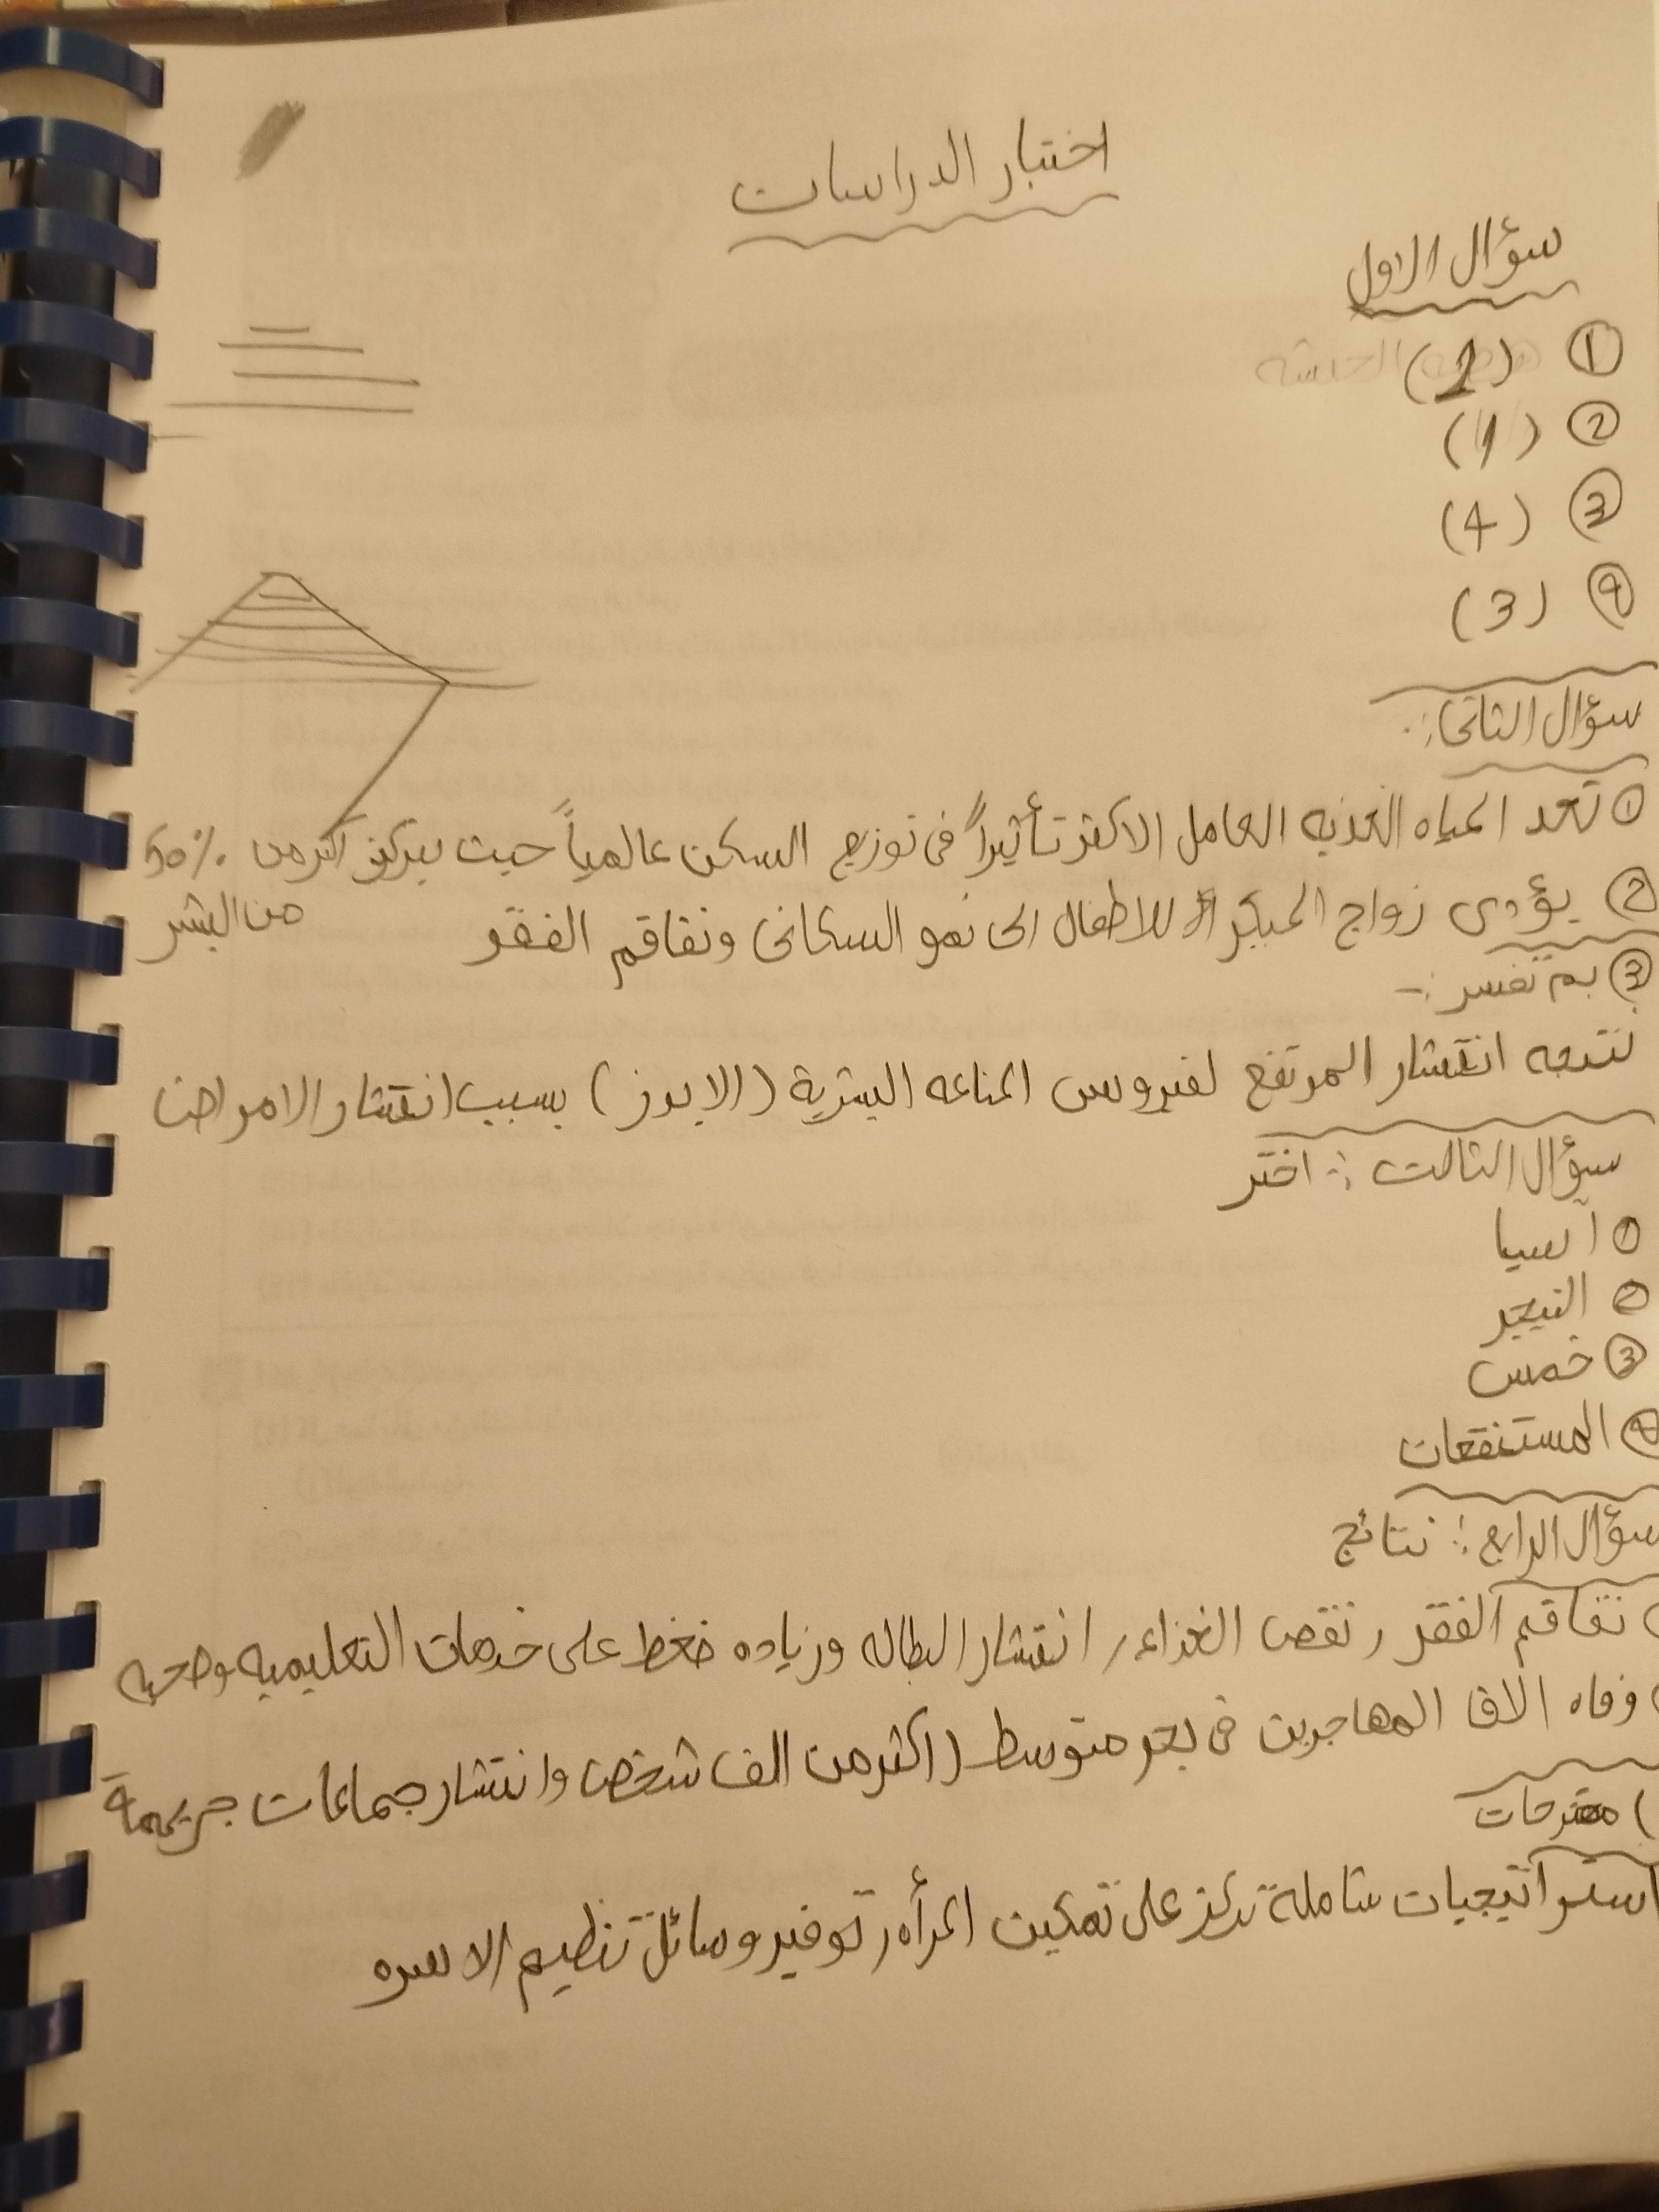 اختبار الدراسات
سؤال الاول
① (1)
② (1)
③ (4)
④ (3)
سؤال الثانى :
① تعد المياه العذبه العامل الاكثر تأثيراً فى توزيع السكن عالمياً حيث يتركز اكثر من 50%
من البشر
② يؤدى زواج المبكر للاطفال الى نمو السكانى وتفاقم الفقر
③ بم تفسر :-
نتيجه انتشار المرتفع لفيروس المناعه البشرية (الايدز) بسبب انتشار الامراض
سؤال الثالث : اختر
① اسيا
② النيجر
③ خمس
④ المستنقعات
سؤال الرابع : نتائج
تفاقم الفقر ، نقص الغذاء ، انتشار البطاله وزياده ضغط على خدمات التعليميه وصحيه
وفاه الاف المهاجرين فى بحر متوسط (اكثر من الف شخص وانتشار جماعات جريمة
) مقترحات
استراتيجيات شاملة تركز على تمكين المرأه ، توفير وسائل تنظيم الاسره